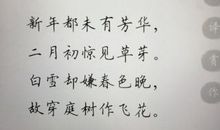 新年都未有芳华，
二月初惊见草芽。
白雪却嫌春色晚，
故穿庭树作飞花。